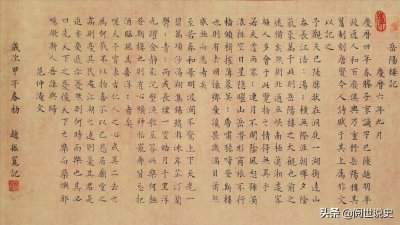 岳陽樓記
慶曆六年九月
慶曆四年春滕子京謫守巴陵郡越明年
政通人和百廢俱興乃重修岳陽樓其
舊制刻唐賢今人詩賦于其上屬予作文
以記之
予觀夫巴陵勝狀在洞庭一湖銜遠山
吞長江浩浩湯湯橫無際涯朝暉夕陰
氣象萬千此則岳陽樓之大觀也前之
述備矣然則北通巫峽南極瀟湘遷客
騷人多會于此覽物之情得無異乎
若夫霪雨霏霏連月不開陰風怒號濁
浪排空日星隱曜山岳潛形商旅不行
檣傾楫摧薄暮冥冥虎嘯猿啼登斯樓
也則有去國懷鄉憂讒畏譏滿目蕭然
感極而悲者矣
至若春和景明波瀾不驚上下天光一
碧萬頃沙鷗翔集錦鱗游泳岸芷汀蘭
郁郁青青而或長煙一空皓月千里浮
光躍金靜影沉璧漁歌互答此樂何極
登斯樓也則有心曠神怡寵辱偕忘把
酒臨風其喜洋洋者矣
嗟夫予嘗求古仁人之心或異二者之
為何哉不以物喜不以己悲居廟堂之
高則憂其民處江湖之遠則憂其君是
進亦憂退亦憂然則何時而樂耶其必
曰先天下之憂而憂後天下之樂而樂歟
噫微斯人吾誰與歸
范仲淹文
歲次甲午春初 趙振寬記
头条 @阅世说史